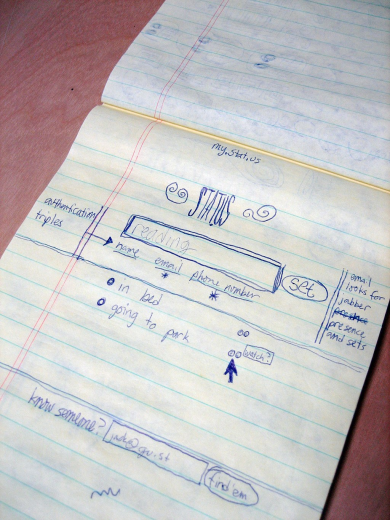 my.stat.us
STATUS
authentication
triples
reading
name email phone number
set
gmail
looks for
jabber
presence
and sets
in bed
going to park
watch?
know someone?
find 'em